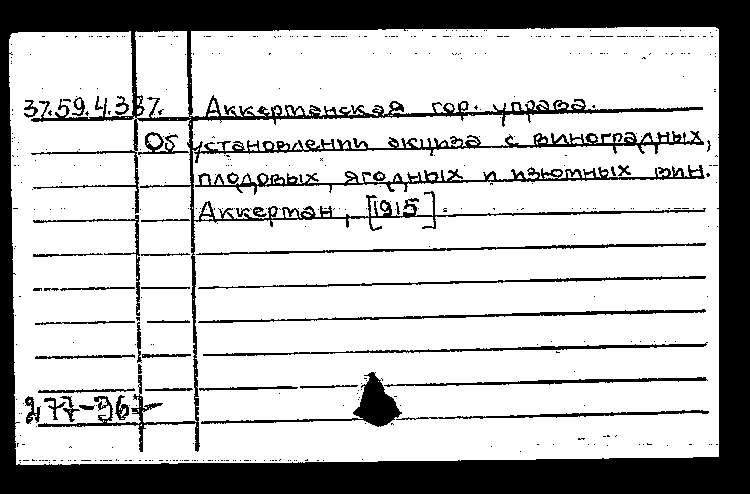 37.59.4.337. Аккерманская гор. управа.
Об установлении акциза с виноградных,
плодовых, ягодных и изюмных вин.
Аккерман, [1915].
277-96